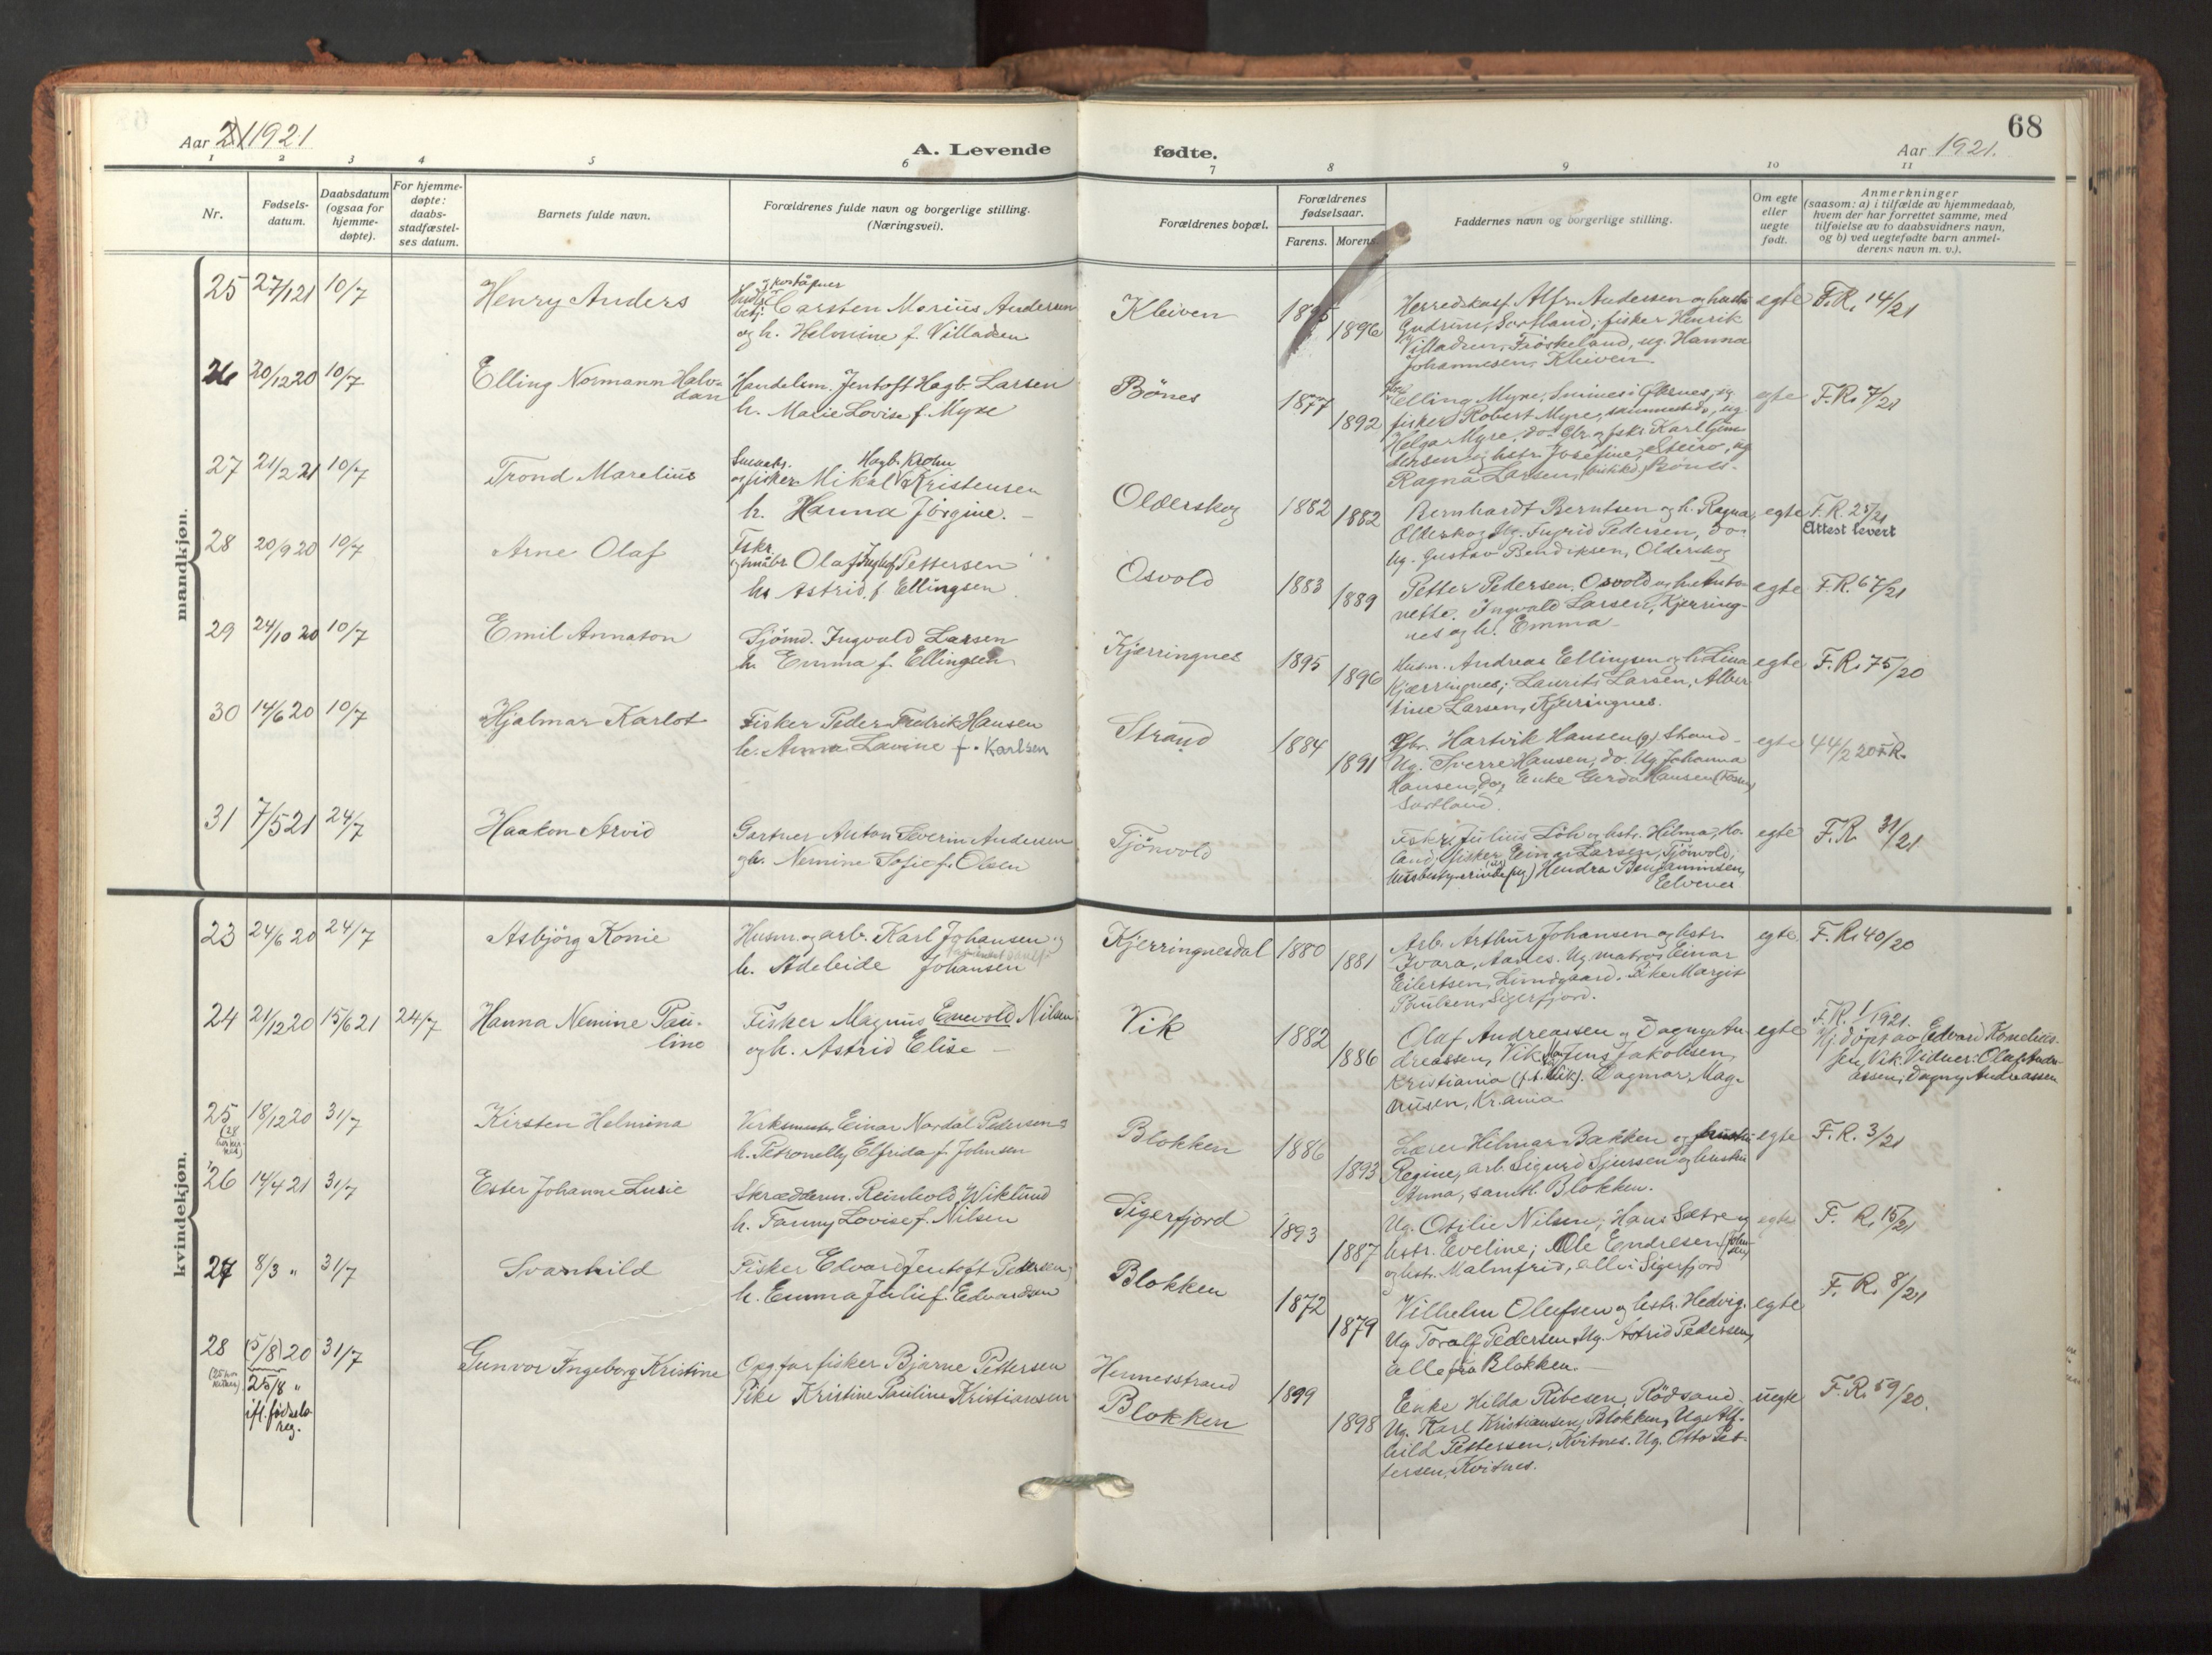 Aar 1921
A. Levende
fødte.
Aar 1921.
68
1 2 3 4 5 6 7 8 9 10 11
Nr.
Fødsels-
datum.
Daabsdatum
(ogsaa for
hjemme-
døpte).
For hjemme-
døpte:
daabs-
stadfæstel-
ses datum.
Barnets fulde navn.
Forældrenes fulde navn og borgerlige stilling.
(Næringsvei).
Forældrenes bopæl.
Forældrenes
fødselsaar.
Farens. Morens.
Faddernes navn og borgerlige stilling.
Om egte
eller
uegte
født.
Anmerkninger
(saasom: a) i tilfælde av hjemmedaab,
hvem der har forrettet samme, med
tilføielse av to daabsvidners navn,
og b) ved uegtefødte barn anmel-
derens navn m. v.).
mandkjøn.
25 27/1 21 10/7 Henry Anders
og poståpner
Carsten Marius Andersen
og h. Helmine f. Villadsen
Kleiven 1895 1896
Herredskasf. Alfr. Andersen og hustru
Gudrun, Sortland; fisker Henrik
Villadsen, Frøskeland, ug. Hanna
Johannesen, Kleiven
egte F.R. 14/21
26 20/12 20 10/7 Elling Normann Halv-
dan
Handelsm. Jentoft Hagb. Larsen
h. Marie Lovise f. Myre
Bönes 1877 1892
Elling Myre,
fisker Robert Myre, sammesteds, ug.
Helga Myre, do. Gbr. og fskr. Karl
og hstr. Josefine, Steiro, ug
Ragna Larsen, Bönes.
egte F.R. 7/21
27 21/2 21 10/7 Trond Marelius
Hagb. Krohn
og fisker Mikal Kristensen
h. Hanna Jörgine. –
Olderskog 1882 1882
Bernhardt Berntsen og h. Ragna,
Olderskog Ug. Ingrid Pedersen, do
Ug. Gustav Bendiksen, Olderskog
egte F.R. 25/21
Attest levert
28 20/9 20 10/7 Arne Olaf
Fskr.
Olaf Pettersen
h. Astrid f. Ellingsen
Osvold 1883 1889
Petter Pedersen, Osvold og h. Anto-
nette. Ingvald Larsen, Kjerring-
nes og h. Emma –
egte F.R. 67/21
29 24/10 20 10/7 Emil Annaton
Sjömd. Ingvald Larsen
h. Emma f. Ellingsen
Kjerringnes 1895 1896
Husm. Andreas Ellingsen og h. Lina
Kjærringnes; Laurits Larsen, Alber
tine Larsen, Kjerringnes.
egte F.R. 75/20
30 14/6 20 10/7 Hjalmar Karlot
Fisker Peder Fredrik Hansen
h. Anna Lavine f. Karlsen
Strand 1884 1891
Gbr. Hartvik Hansen (g) Strand –
Ug. Sverre Hansen, do. Ug Johanna
Hansen, do, Enke Gerda Hansen
Sortland.
egte 44/2 20 F.R.
31 7/5 21 24/7 Haakon Arvid
Gartner Anton Severin Andersen
og h. Nemine Sofie f. Olsen
Tjönvold
Fskr. Julius Löh og hstr. Hilma, Ho-
land, fisker Einar Larsen, Tjönvold,
husbestyrerinde (ug) Hendra Benjaminsen,
Eelvenes
egte F.R. 31/21
kvindekjøn.
23 24/6 20 24/7 Asbjörg Konie
Husm. og arb. Karl Johansen og
h. Adeleide Johansen
Kjerringnesdal 1880 1881
Arb. Arthur Johansen og hstr.
Ivara, Aanes. Ug matros Einar
Eilertsen, Lundgaard. Pike Margit
Paulsen, Sigerfjord.
egte F.R. 40/20
24 21/12 20 15/6 21 24/7 Hanna Nemine Pau-
line
Fisker Magnus Enevold Nilsen
og h. Astrid Elise –
Vik 1882 1886
Olaf Andreassen og Dagny An-
dreassen, Vik. Jens Jakobsen,
Kristiania (f.t. Vik). Dagmar Mag-
nusen, Kr.ania
egte F.R. 1/1921.
Hj. döpt av Edvard Kornelius-
sen, Vik. Vidner: Olaf Andre-
assen, Dagny Andreassen
25 18/12 20 31/7 Kirsten Helmina
Verksmester Einar Nordal Pedersen og
h. Petronelly Elfrida f. Johnsen
Blokken 1886 1893
Lærer Hilmar Bakken og hustru
Regine, arb. Sigurd Sjursen og hustru
Anna, samtl. Blokken.
egte F.R. 3/21
26 14/4 21 31/7 Ester Johanne Lusie
Skrædderm. Reinhold Wiklund
h. Fanny Lovise f. Nilsen
Sigerfjord 1893 1887
Ug. Otilie Nilsen; Hans Sætre og
hstr. Eveline; Ole Endresen
og hstr. Malmfrid, alle i Sigerfjord
egte F.R. 15/21
27 8/3 „ 31/7 Svanhild
Fisker Edvard Jentoft Pedersen,
h. Emma Julie f. Edvardsen
Blokken 1872 1879
Vilhelm Olufsen og hstr. Hedvig.
Ug Toralf Pedersen. Ug. Astrid Pedersen,
alle fra Blokken. –
egte F.R. 8/21
28 (5/8) 20 31/7 Gunvor Ingeborg Kristine
25/8 „
ifl. fødsels-
reg.
Opg. far fisker Bjarne Pettersen
Pike Kristine Pauline Kristiansen
Hennesstrand
Blokken
1899 1898
Enke Hilda Ribesen, Rödsand.
Ug. Karl Kristiansen, Blokken, Ug. Alf-
hild Pettersen, Kvitnes. Ug. Otto Pet-
tersen, Kvitnes.
uegte F.R. 59/20.